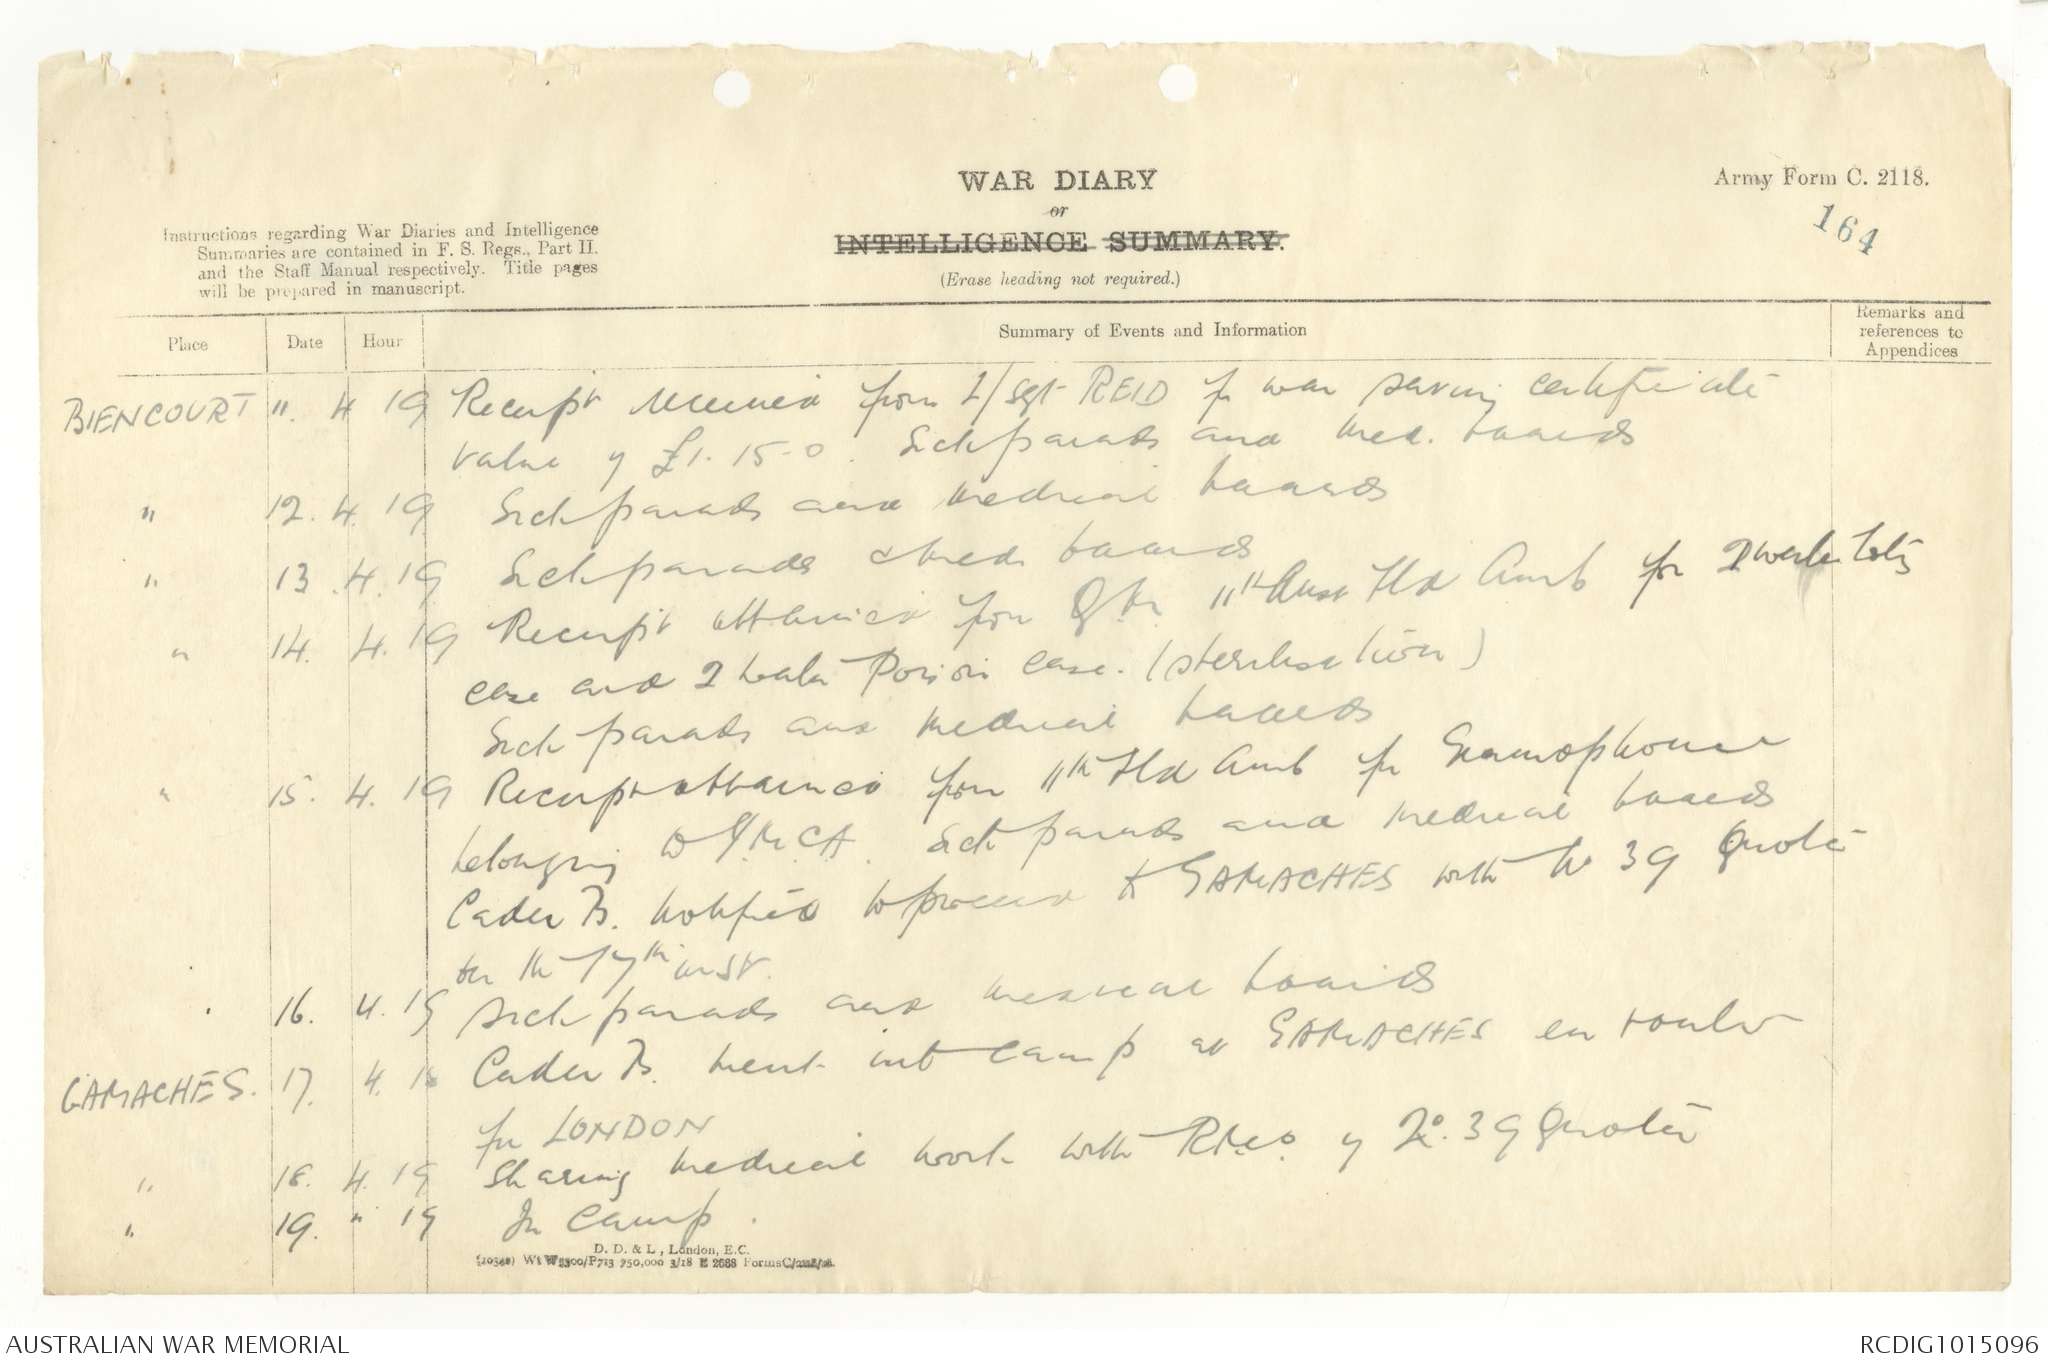 WAR DIARY
or
INTELLIGENCE SUMMARY.
(Erase heading not required.)
Army Form C. 2118.
164
Instructions regarding War Diaries and Intelligence
Summaries are contained in F. S. Regs., Part II.
and the Staff Manual respectively. Title pages
will be prepared in manuscript.
Place Date Hour Summary of Events and Information Remarks and references to Appendices
BIENCOURT 11. 4 19 Receipt received from L/Sgt REID for war saving certificate
value of £1. 15-0. Sick parade and med. boards
" 12. 4. 19 Sick parade and medical boards
" 13. 4. 19 Sick parade & med. boards
" 14. 4. 19 Receipt obtained from Q.M. 11th Aust Fld Amb for 2 water testing
case and 2 water Poison case. (sterilisation)
Sick parade and medical boards
" 15. 4. 19 Receipt obtained from 11th Fld Amb for Gramophone
belonging to Y.M.C.A. Sick parade and medical boards
Cader B. notified to proceed to GAMACHES with No 39 Quota
on the 17th inst.
16. 4. 19 Sick parade and medical boards
GAMACHES. 17. 4. Cader B. went into camp at GAMACHES en route
for LONDON
" 18. 4. 19 Sharing medical work with R.M.O. of No. 39 Quota
" 19. " 19 In Camp.
D. D. & L., London, E.C.
Wt W5300/P713 750,000 3/18 E 2688 Forms
AUSTRALIAN WAR MEMORIAL
RCDIG1015096